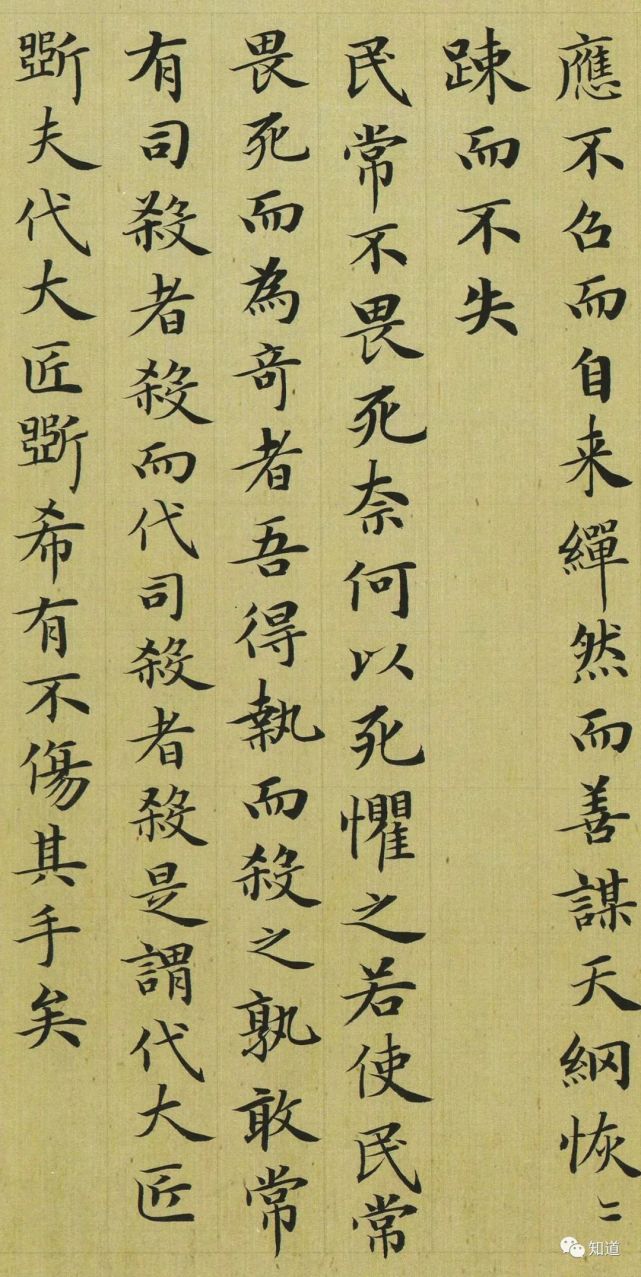 應不召而自来繟然而善謀天綱恢〻
踈而不失
民常不畏死奈何以死懼之若使民常
畏死而為竒者吾得執而殺之孰敢常
有司殺者殺而代司殺者殺是謂代大匠
斵夫代大匠斵希有不傷其手矣
知道